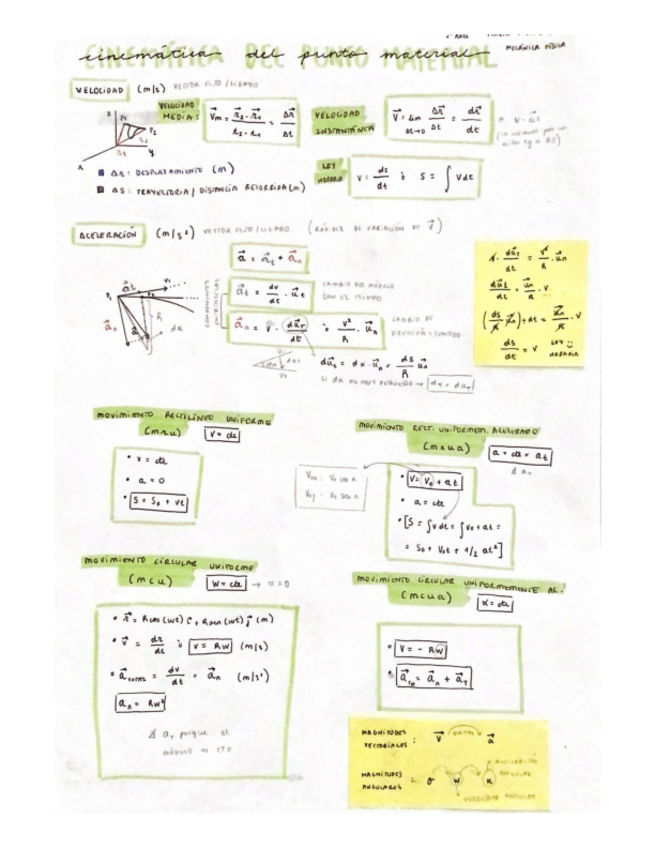 cinemática del punto material
CINEMÁTICA DEL PUNTO MATERIAL
MECÁNICA FÍSICA
VELOCIDAD (m/s) VECTOR FIJO / LIGADO
VELOCIDAD MEDIA: V⃗m = (r⃗₂ - r⃗₁)/(t₂ - t₁) = Δr⃗/Δt
VELOCIDAD INSTANTÁNEA V⃗ = lim Δt→0 Δr⃗/Δt = dr⃗/dt
Δr: DESPLAZAMIENTO (m)
ΔS: TRAYECTORIA / DISTANCIA RECORRIDA (m)
LEY HORARIA V = ds/dt ó S = ∫ V dt
ACELERACIÓN (m/s²) VECTOR FIJO / LIGADO (RAPIDEZ DE VARIACIÓN DE V⃗)
a⃗ = a⃗t + a⃗n
a⃗t = dv/dt · u⃗t CAMBIO DE MÓDULO CON EL TIEMPO
a⃗n = V · du⃗T/dt ó V²/R · u⃗n CAMBIO DE DIRECCIÓN Y SENTIDO
du⃗t = dα · u⃗n = ds/R u⃗n
SI dα ES MUY PEQUEÑO → dα = duT
V · du⃗T/dt = V²/R · u⃗n
du⃗t/dt = u⃗n/R · V
(ds/R u⃗n) ÷ dt = u⃗n/R · V
ds/dt = V LEY HORARIA
MOVIMIENTO RECTILÍNEO UNIFORME
(mru) V = cte
• V = cte
• a = 0
• S = S₀ + vt
MOVIMIENTO RECT. UNIFORMEM. ACELERADO
(mrua) a = cte = at
∄ an
Vox = Vo cos α
Voy = Vo sen α
• V = V₀ + at
• a = cte
• [S = ∫vdt = ∫v₀ + at =
= S₀ + V₀t + 1/2 at²]
MOVIMIENTO CIRCULAR UNIFORME
(mcu) W = cte → α = 0
• r⃗ = R cos(wt) i⃗ + R sen(wt) j⃗ (m)
• v⃗ = dr⃗/dt ó V = RW (m/s)
• a⃗TOTAL = dv/dt = a⃗n (m/s²)
an = RW²
∄ aT porque el
módulo es cte
MOVIMIENTO CIRCULAR UNIFORMEMENTE AC.
(mcua) α = cte
• V = - RW
• a⃗ = a⃗n + a⃗T
MAGNITUDES VECTORIALES: V⃗ a⃗
MAGNITUDES ANGULARES: σ W α
ACELERACIÓN ANGULAR
VELOCIDAD ANGULAR